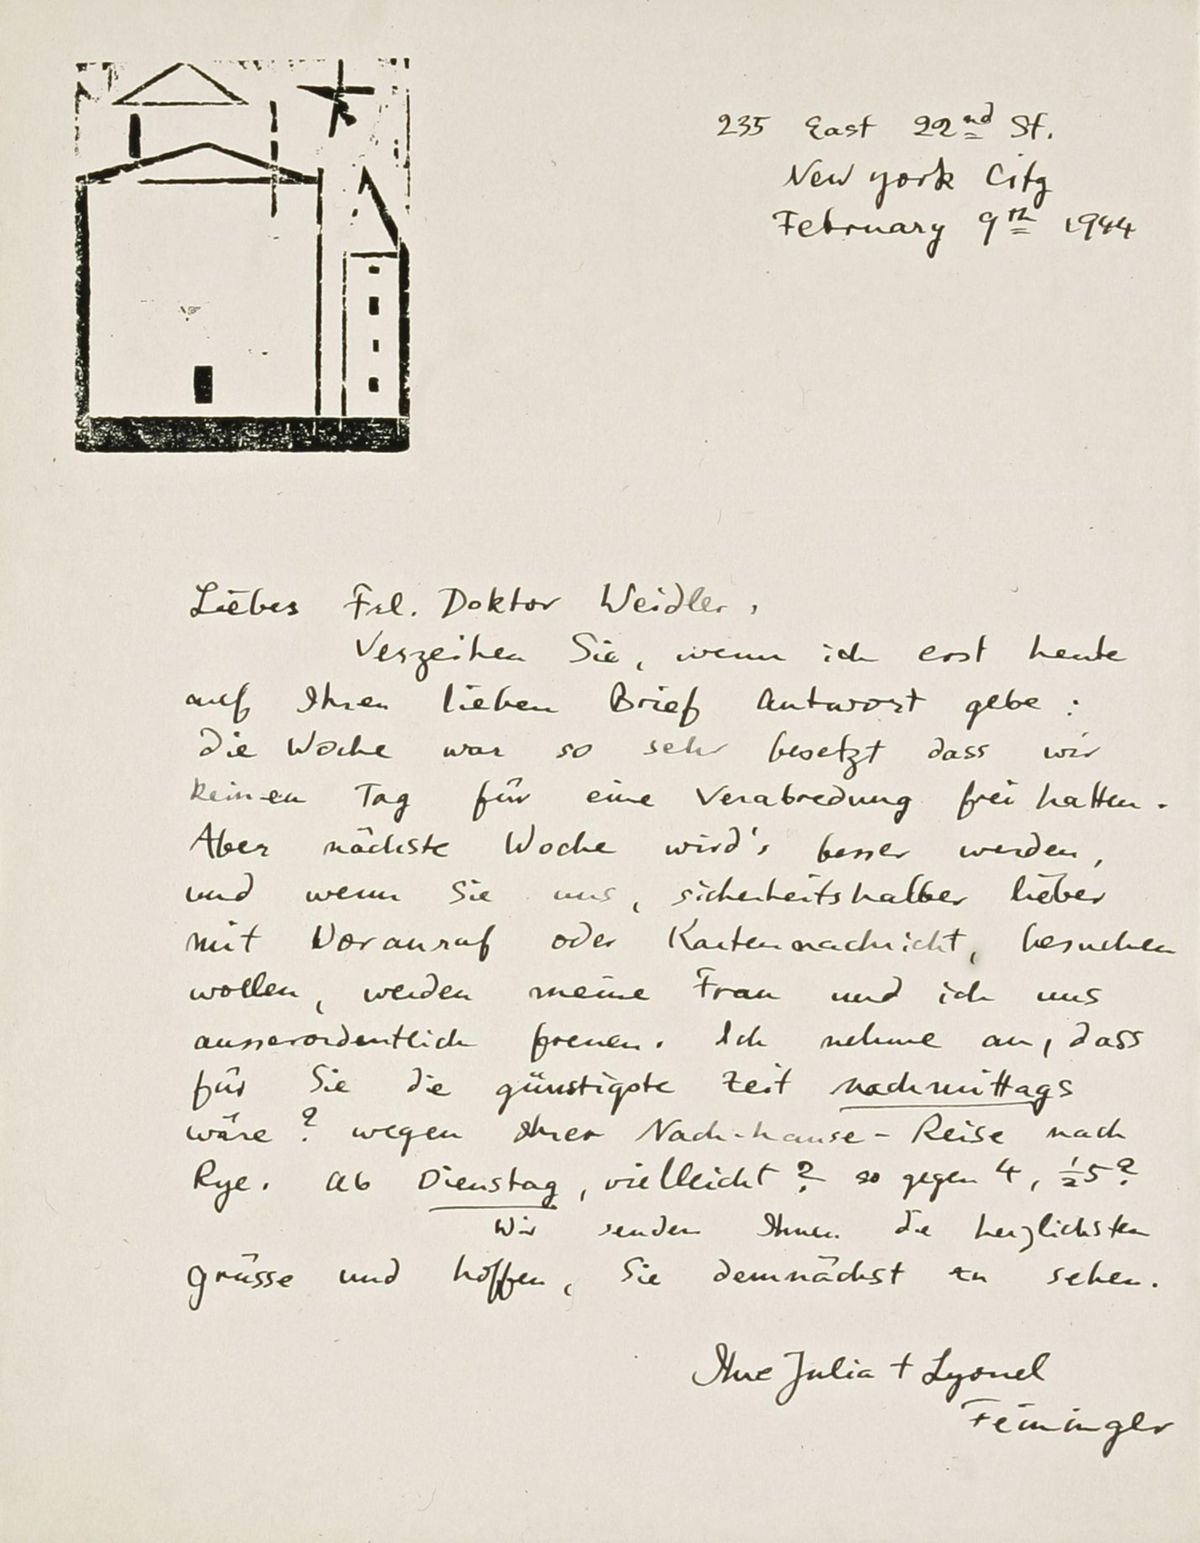 235 East 22nd St.
New York City
February 9th 1944
Liebes Frl. Doktor Weidler,
Verzeihen Sie, wenn ich erst heute
auf Ihren lieben Brief Antwort gebe:
die Woche war so sehr besetzt dass wir
keinen Tag für eine Verabredung frei hatten.
Aber nächste Woche wird's besser werden,
und wenn Sie uns, sicherheitshalber lieber
mit Voranruf oder Kartennachricht, besuchen
wollen, werden meine Frau und ich uns
ausserordentlich freuen. Ich nehme an, dass
für Sie die günstigste Zeit nachmittags
wäre? wegen Ihrer Nach-hause-Reise nach
Rye. ab Dienstag, vielleicht? so gegen 4, ½5?
Wir senden Ihnen die herzlichsten
Grüsse und hoffen, Sie demnächst zu sehen.
Ihre Julia + Lyonel
Feininger